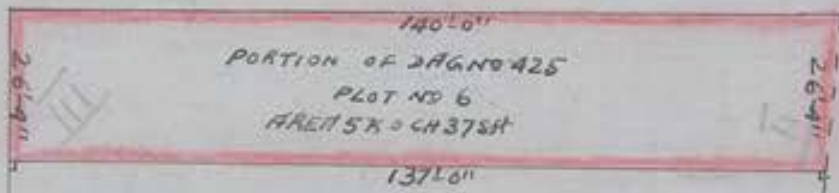 140'-0"
PORTION OF DAG NO 425
PLOT NO 6
AREA 5K 0 CH 37 Sft
26'-9"
26'-9"
137'-0"
III